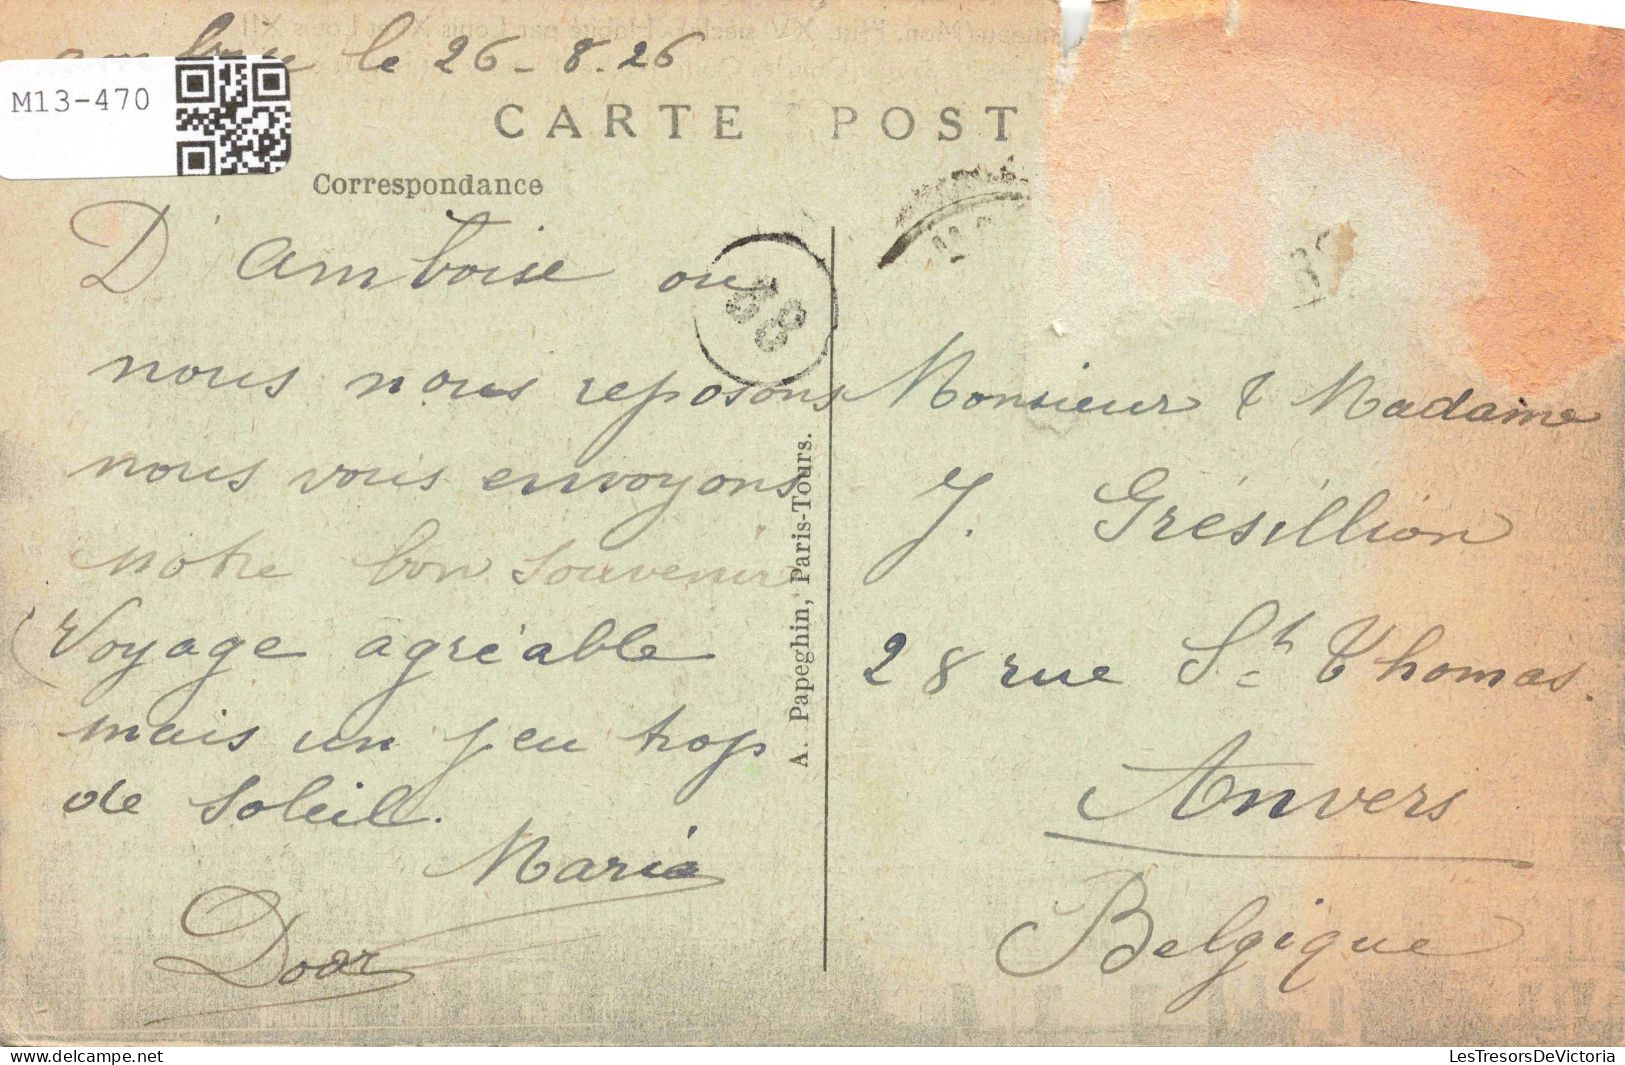 Amboise le 26-8-26
M13-470
CARTE POST
Correspondance
D'Amboise ou
nous nous reposons
nous vous envoyons
notre bon souvenir
Voyage agréable
mais un peu trop
de soleil.
Maria
Door
38
A. Papeghin, Paris-Tours.
Monsieur & Madame
J. Grésillion
28 rue St Thomas.
Anvers
Belgique
LesTresorsDeVictoria